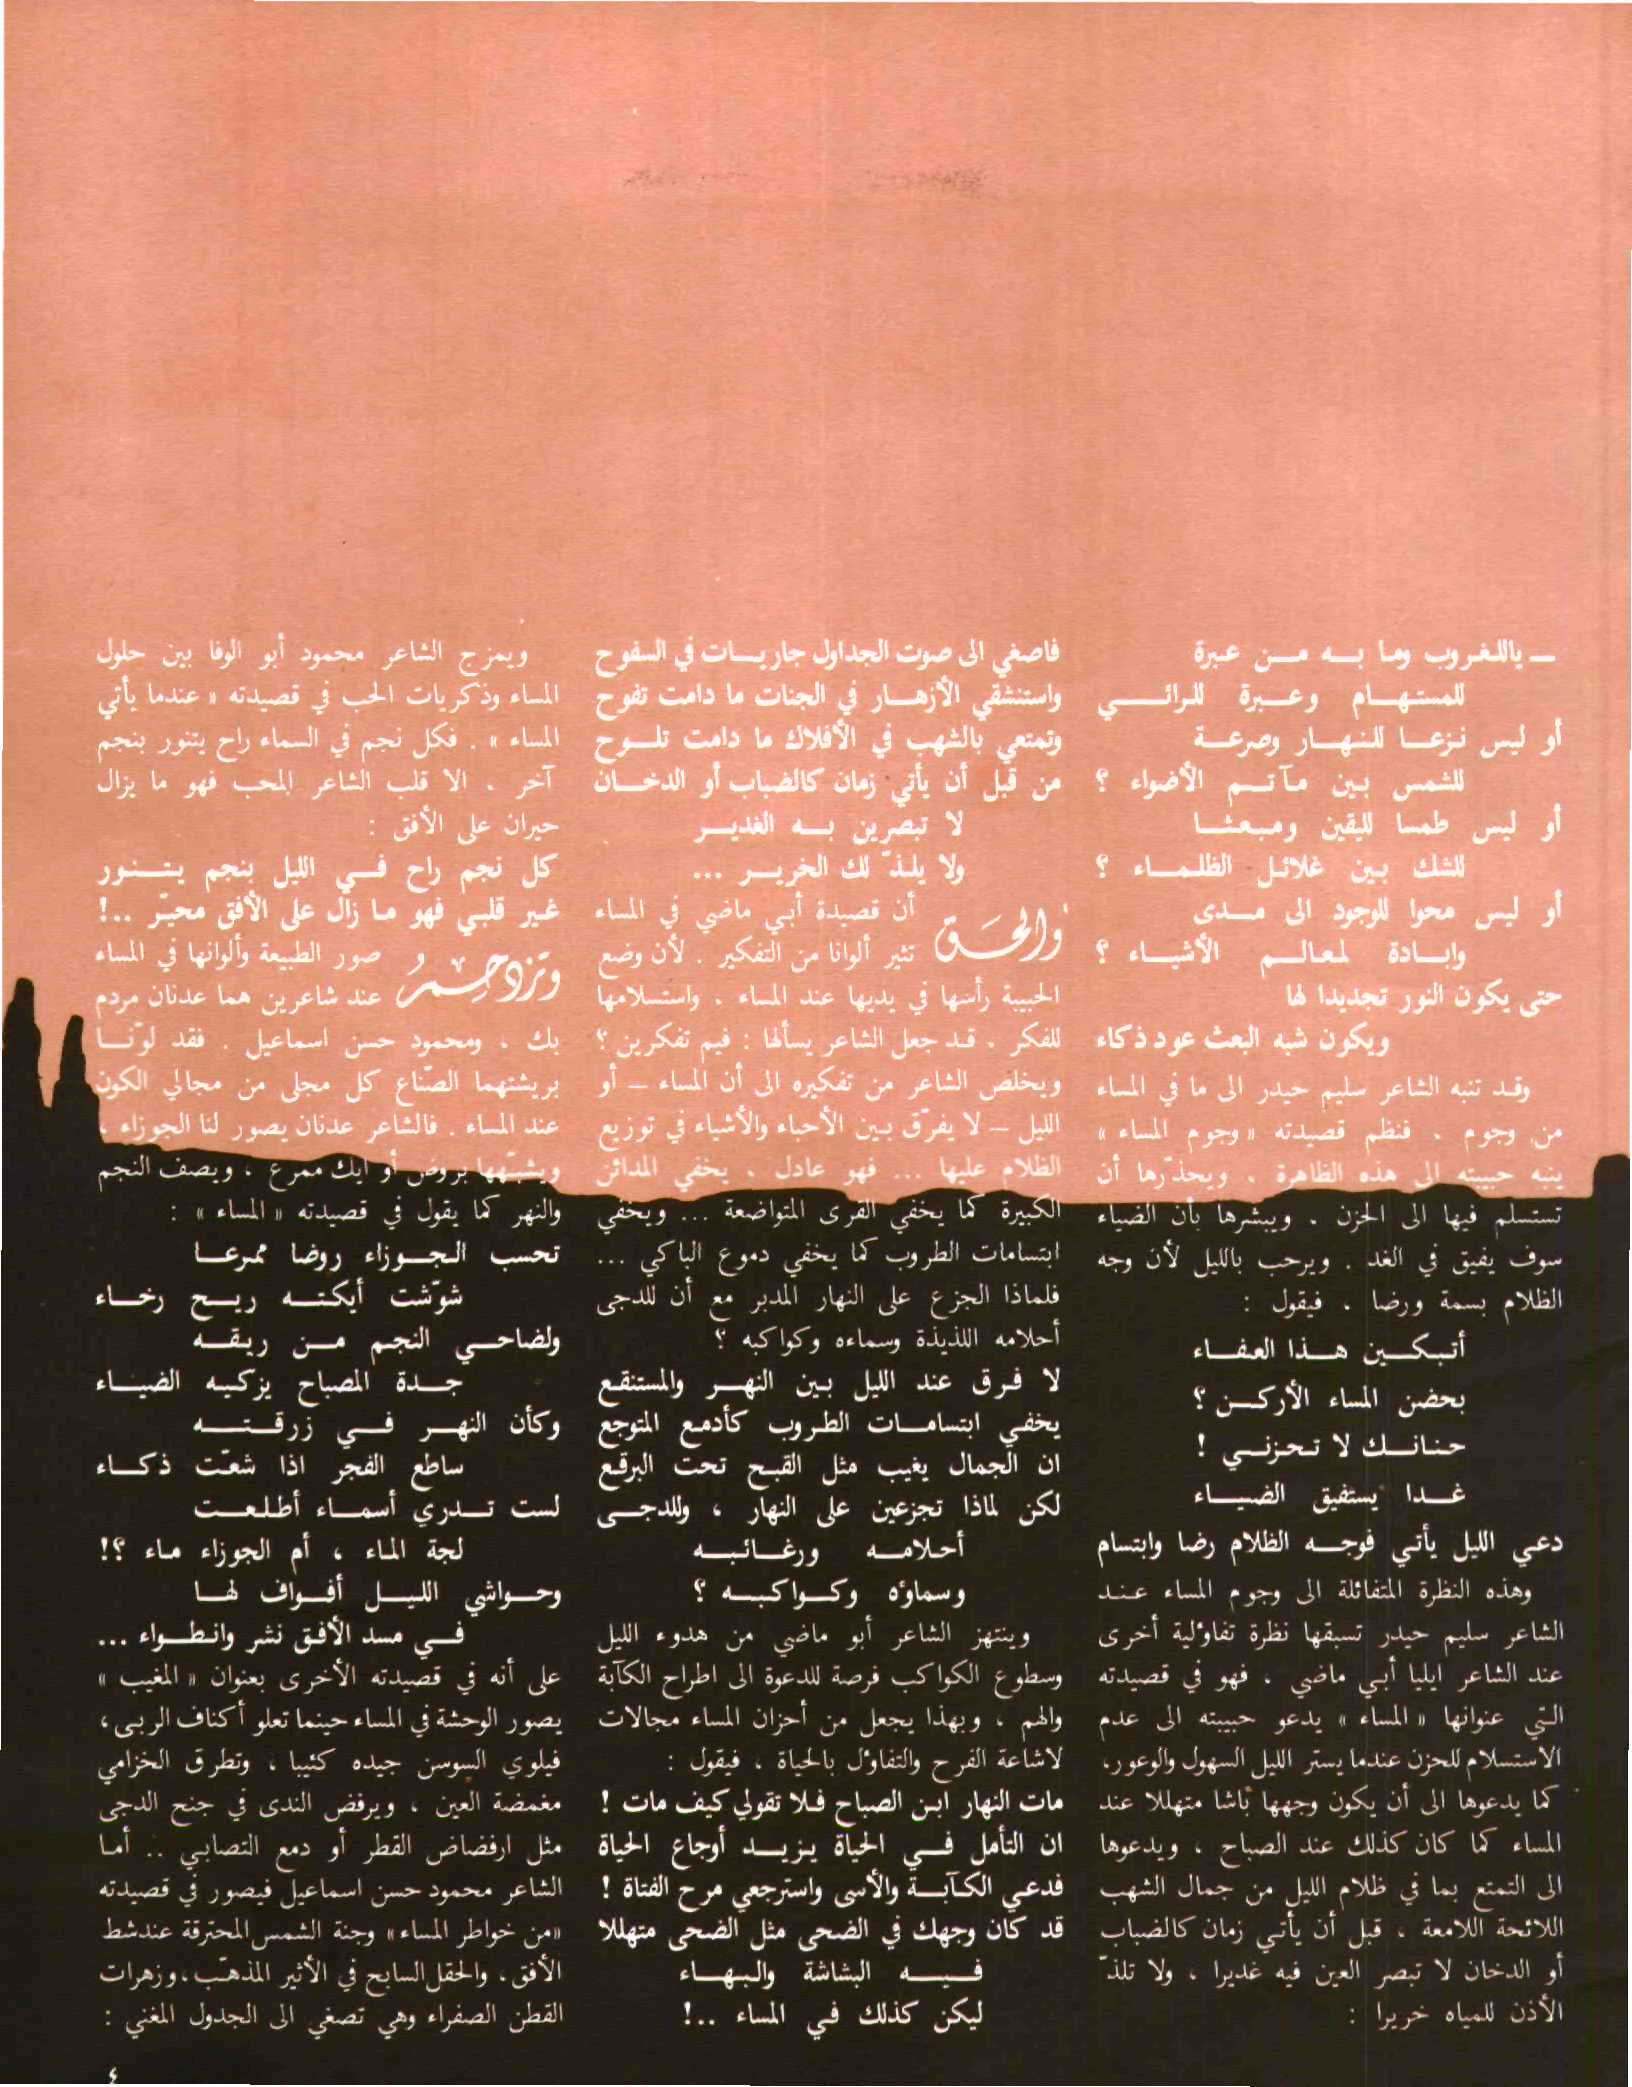 ــ ياللغروب وما به من عبرة
للمستهام وعبرة للرائي
أو ليس نزعا للنهار وصرعة
للشمس بين مآتم الأضواء ؟
أو ليس طمسا لليقين ومبعثا
للشك بين غلائل الظلماء ؟
أو ليس محوا للوجود الى مدى
وابادة لمعالم الأشياء ؟
حتى يكون النور تجديدا لها
ويكون شبه البعث عود ذكاء
وقد تنبه الشاعر سليم حيدر الى ما في المساء
من وجوم ، فنظم قصيدته « وجوم المساء »
ينبه حبيبته الى هذه الظاهرة ، ويحذّرها أن
تستسلم فيها الى الحزن . ويبشرها بأن الضياء
سوف يفيق في الغد . ويرحب بالليل لأن وجه
الظلام بسمة ورضا ، فيقول :
أتبكين هذا العفاء
بحضن المساء الأركن ؟
حنانك لا تحزني !
غدا يستفيق الضياء
دعي الليل يأتي فوجه الظلام رضا وابتسام
وهذه النظرة المتفائلة الى وجوم المساء عند
الشاعر سليم حيدر تسبقها نظرة تفاؤلية أخرى
عند الشاعر ايليا أبي ماضي ، فهو في قصيدته
التي عنوانها « المساء » يدعو حبيبته الى عدم
الاستسلام للحزن عندما يستر الليل السهول والوعور،
كما يدعوها الى أن يكون وجهها باشا متهللا عند
المساء كما كان كذلك عند الصباح ، ويدعوها
الى التمتع بما في ظلام الليل من جمال الشهب
اللائحة اللامعة ، قبل أن يأتي زمان كالضباب
أو الدخان لا تبصر العين فيه غديرا ، ولا تلذّ
الأذن للمياه خريرا :
فاصغي الى صوت الجداول جاريات في السفوح
واستنشقي الأزهار في الجنات ما دامت تفوح
وتمتعي بالشهب في الأفلاك ما دامت تلوح
من قبل أن يأتي زمان كالضباب أو الدخان
لا تبصرين به الغدير
ولا يلذّ لك الخرير ...
والحق أن قصيدة أبي ماضي في المساء
تثير ألوانا من التفكير . لأن وضع
الحبيبة رأسها في يديها عند المساء ، واستسلامها
للفكر ، قد جعل الشاعر يسألها : فيم تفكرين ؟
ويخلص الشاعر من تفكيره الى أن المساء – أو
الليل – لا يفرّق بين الأحياء والأشياء في توزيع
الظلام عليها ... فهو عادل ، يخفي المدائن
الكبيرة كما يخفي القرى المتواضعة ... ويخفي
ابتسامات الطروب كما يخفي دموع الباكي ...
فلماذا الجزع على النهار المدبر مع أن للدجى
أحلامه اللذيذة وسماءه وكواكبه ؟
لا فرق عند الليل بين النهر والمستنقع
يخفي ابتسامات الطروب كأدمع المتوجع
ان الجمال يغيب مثل القبح تحت البرقع
لكن لماذا تجزعين على النهار ، وللدجى
أحلامه ورغائبه
وسماؤه وكواكبه ؟
وينتهز الشاعر أبو ماضي من هدوء الليل
وسطوع الكواكب فرصة للدعوة الى اطراح الكآبة
والهم ، وبهذا يجعل من أحزان المساء مجالات
لاشاعة الفرح والتفاؤل بالحياة ، فيقول :
مات النهار ابن الصباح فلا تقولي كيف مات !
ان التأمل في الحياة يزيد أوجاع الحياة
فدعي الكآبة والأسى واسترجعي مرح الفتاة !
قد كان وجهك في الضحى مثل الضحى متهللا
فيه البشاشة والبهاء
ليكن كذلك في المساء ..!
ويمزج الشاعر محمود أبو الوفا بين حلول
المساء وذكريات الحب في قصيدته « عندما يأتي
المساء » . فكل نجم في السماء راح يتنور بنجم
آخر ، الا قلب الشاعر المحب فهو ما يزال
حيران على الأفق :
كل نجم راح في الليل بنجم يتنور
غير قلبي فهو ما زال على الأفق محيّر ..!
وتزدحم صور الطبيعة وألوانها في المساء
عند شاعرين هما عدنان مردم
بك ، ومحمود حسن اسماعيل . فقد لوّنا
بريشتهما الصّناع كل مجلى من مجالي الكون
عند المساء . فالشاعر عدنان يصور لنا الجوزاء ،
ويشبّهها بروض أو أيك ممرع ، ويصف النجم
والنهر كما يقول في قصيدته « المساء » :
تحسب الجوزاء روضا ممرعا
شوّشت أيكته ريح رخاء
ولضاحي النجم من ريقه
جدة المصباح يزكيه الضياء
وكأن النهر في زرقته
ساطع الفجر اذا شعّت ذكاء
لست تدري أسماء أطلعت
لجة الماء ، أم الجوزاء ماء ؟!
وحواشي الليل أفواف لها
في مسد الأفق نشر وانطواء ...
على أنه في قصيدته الأخرى بعنوان « المغيب »
يصور الوحشة في المساء حينما تعلو أكناف الربى،
فيلوي السوسن جيده كئيبا ، وتطرق الخزامي
مغمضة العين ، ويرفض الندى في جنح الدجى
مثل ارفضاض القطر أو دمع التصابي .. أما
الشاعر محمود حسن اسماعيل فيصور في قصيدته
«من خواطر المساء» وجنة الشمس المحترقة عند شط
الأفق، والحقل السابح في الأثير المذهّب، وزهرات
القطن الصفراء وهي تصغي الى الجدول المغني :
٤